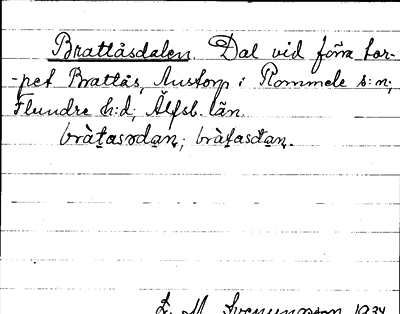 Brattåsdalen. Dal vid förra tor-
-pet Brattås, Austorp i Rommele s:n;
Flundre h:d; Älfsb. län.
bràt̠asdan̠; bràt̠asdan̠.
L. M. Svenungsson 1934